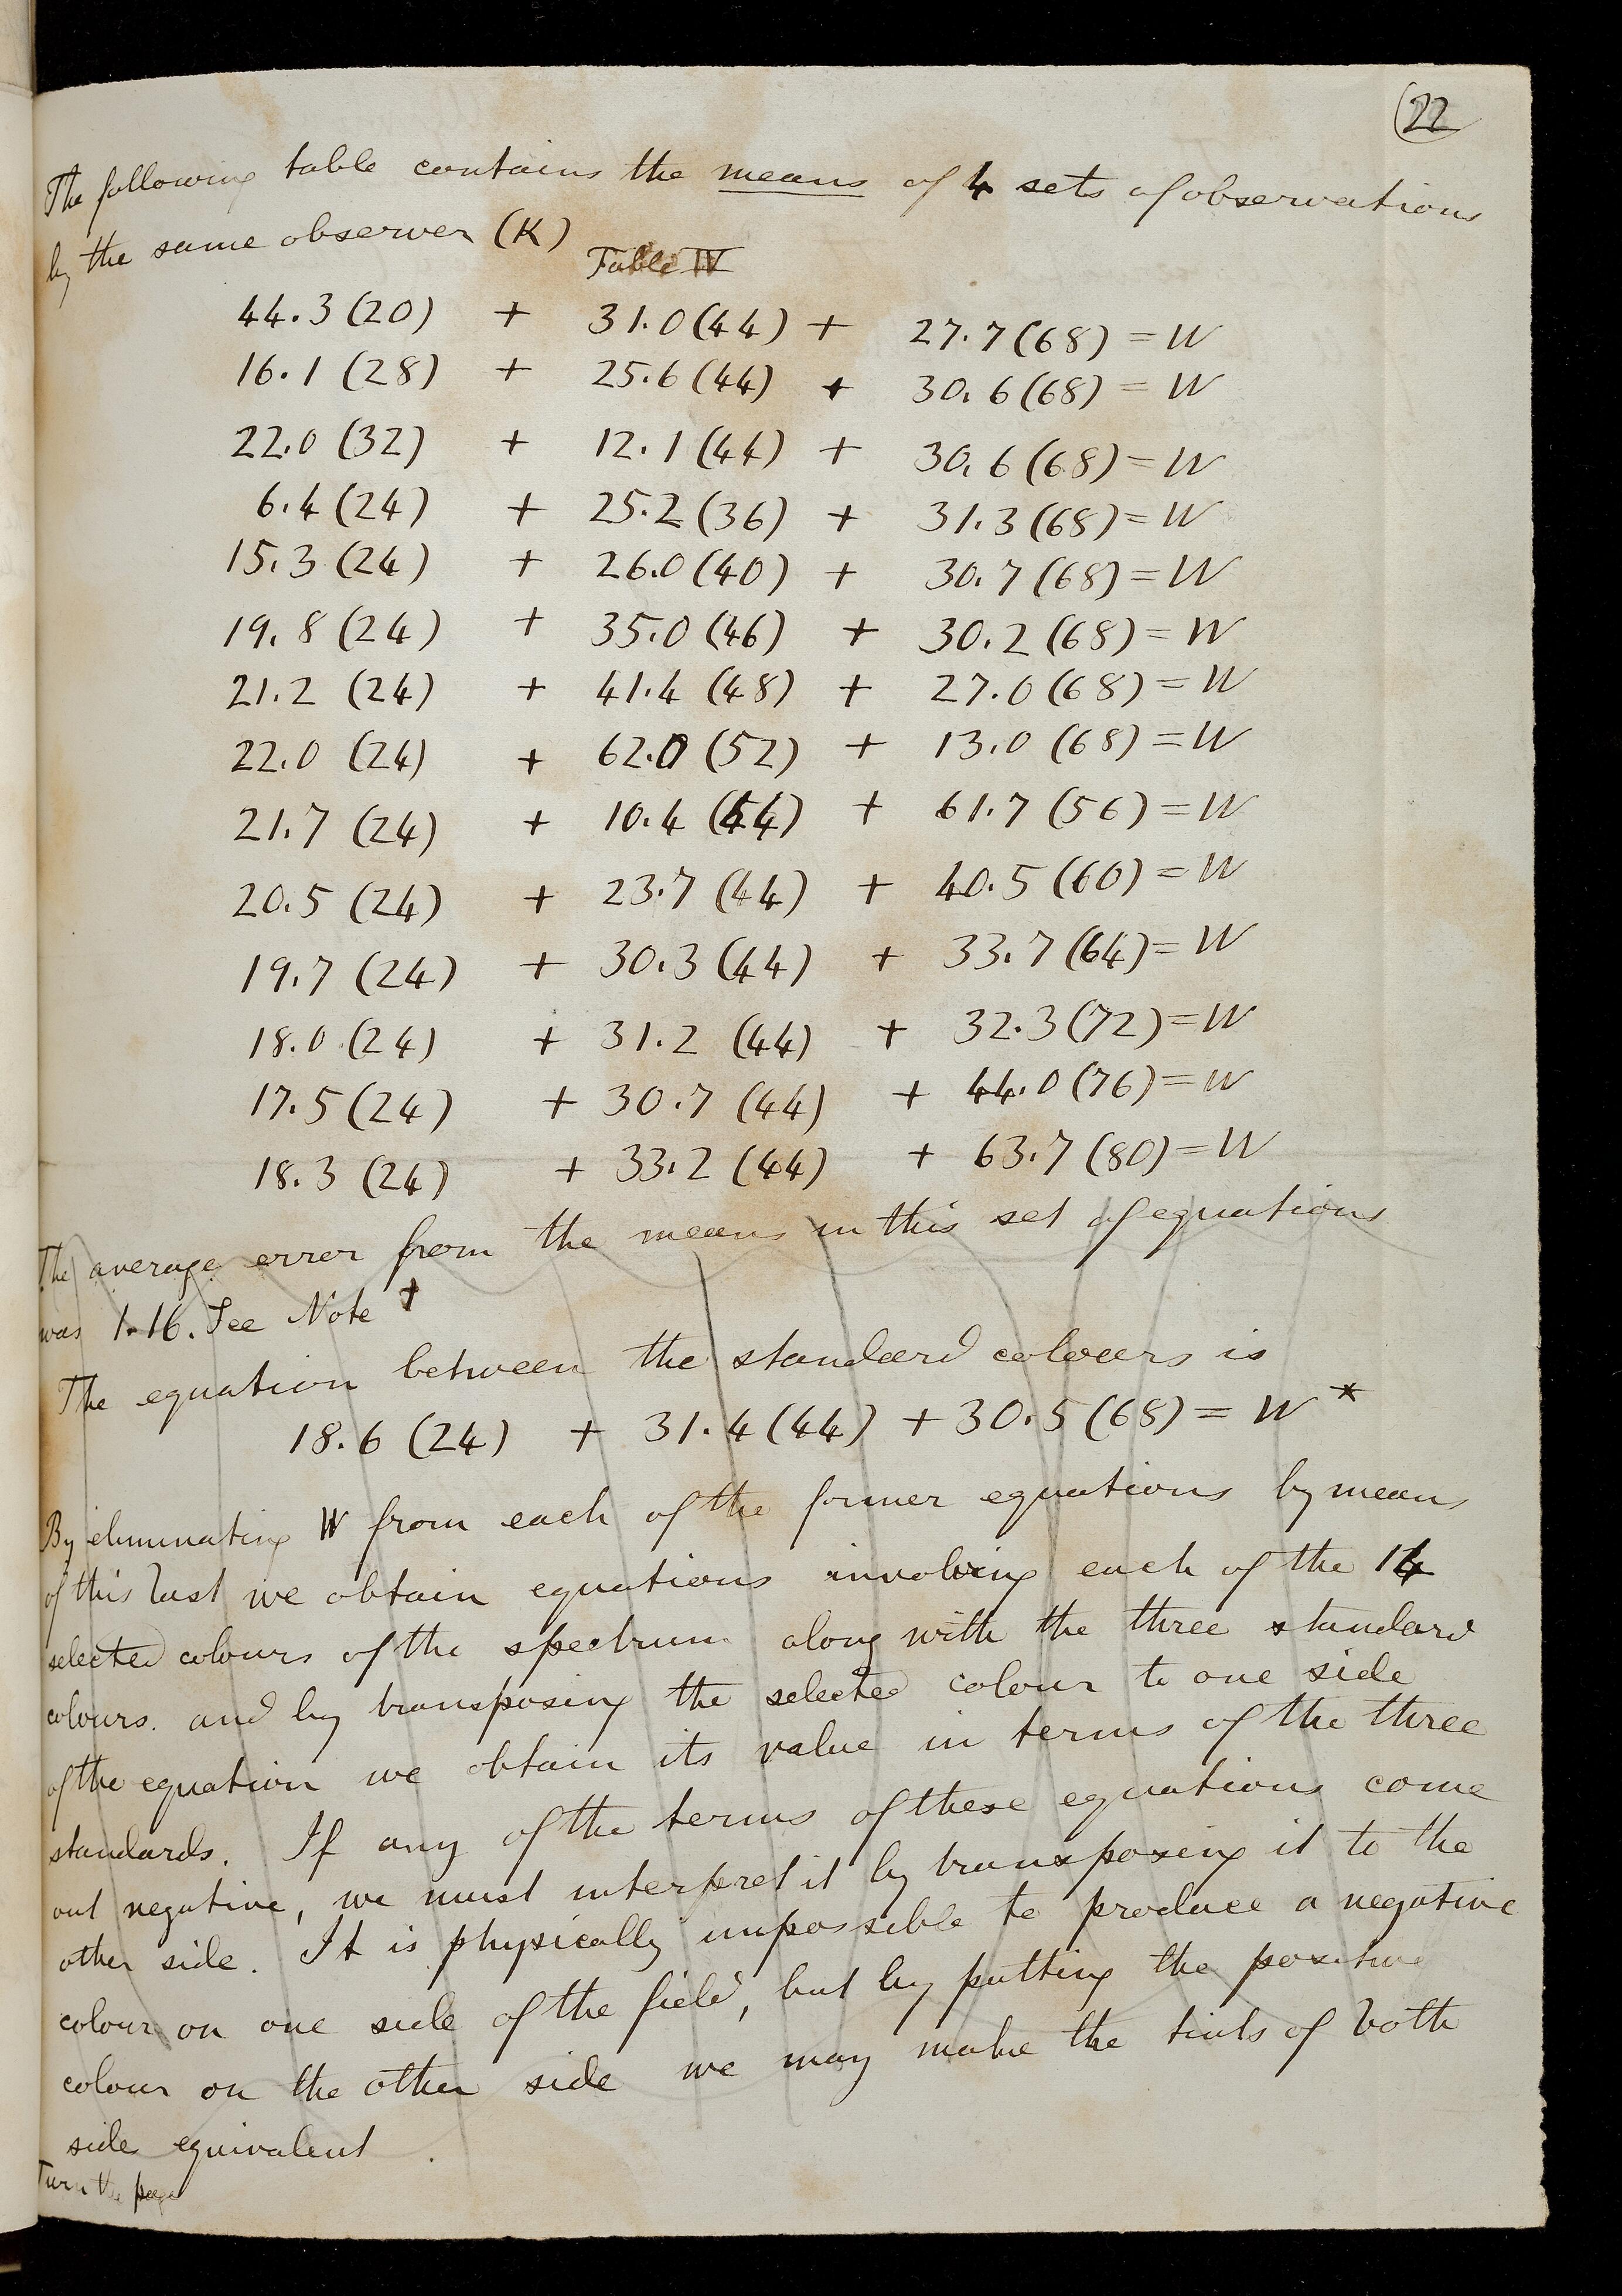 22
The following table contains the means of 4 sets of observations
by the same observer (K)
Table IV
44.3 (20) + 31.0 (44) + 27.7 (68) = W
16.1 (28) + 25.6 (44) + 30.6 (68) = W
22.0 (32) + 12.1 (44) + 30.6 (68) = W
6.4 (24) + 25.2 (36) + 31.3 (68) = W
15.3 (24) + 26.0 (40) + 30.7 (68) = W
19.8 (24) + 35.0 (46) + 30.2 (68) = W
21.2 (24) + 41.4 (48) + 27.0 (68) = W
22.0 (24) + 62.0 (52) + 13.0 (68) = W
21.7 (24) + 10.4 (44) + 61.7 (56) = W
20.5 (24) + 23.7 (44) + 40.5 (60) = W
19.7 (24) + 30.3 (44) + 33.7 (64) = W
18.0 (24) + 31.2 (44) + 32.3 (72) = W
17.5 (24) + 30.7 (44) + 44.0 (76) = W
18.3 (24) + 33.2 (44) + 63.7 (80) = W
The average error from the means in this set of equations
was 1.16. See Note †
The equation between the standard colours is
18.6 (24) + 31.4 (44) + 30.5 (68) = W *
By eliminating W from each of the former equations by means
of this last we obtain equations involving each of the 14
selected colours of the spectrum along with the three standard
colours. and by transposing the selected colour to one side
of the equation we obtain its value in terms of the three
standards. If any of the terms of these equations come
out negative, we must interpret it by transposing it to the
other side. It is physically impossible to produce a negative
colour on one side of the field, but by putting the positive
colour on the other side we may make the tints of both
side equivalent.
Turn the page